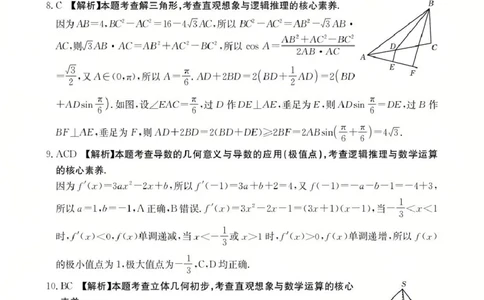 8. C 【解析】本题考查解三角形,考查直观想象与逻辑推理的核心素养.
因为AB=4,BC²-AC²=16-4√3AC,所以BC²-AC²=AB²-√3AB·
AC,则√3AB·AC=AB²+AC²-BC²,所以 cos A=(AB²+AC²-BC²)/(2AB·AC)
=√3/2,又A∈(0,π),所以A=π/6. AD+2BD=2(BD+1/2AD)=2(BD
+ADsin π/6). 如图,设∠EAC=π/6,过D作DE⊥AE,垂足为E,则ADsin π/6=DE,过B作
BF⊥AE,垂足为F,则AD+2BD=2(BD+DE)≥2BF=2ABsin(π/6+π/6)=4√3.
B
D
C
A
E
F
9. ACD 【解析】本题考查导数的几何意义与导数的应用(极值点),考查逻辑推理与数学运算
的核心素养.
因为f′(x)=3ax²-2x+b,所以f′(-1)=3a+b+2=4,又f(-1)=-a-b-1=-4+3,
所以a=1,b=-1,A正确,B错误. f′(x)=3x²-2x-1=(3x+1)(x-1),当-1/3<x<1
时,f′(x)<0,f(x)单调递减,当x<-1/3或x>1时,f′(x)>0,f(x)单调递增,所以f(x)
的极小值点为1,极大值点为-1/3,C,D均正确.
10. BC 【解析】本题考查立体几何初步,考查直观想象与数学运算的核心
S